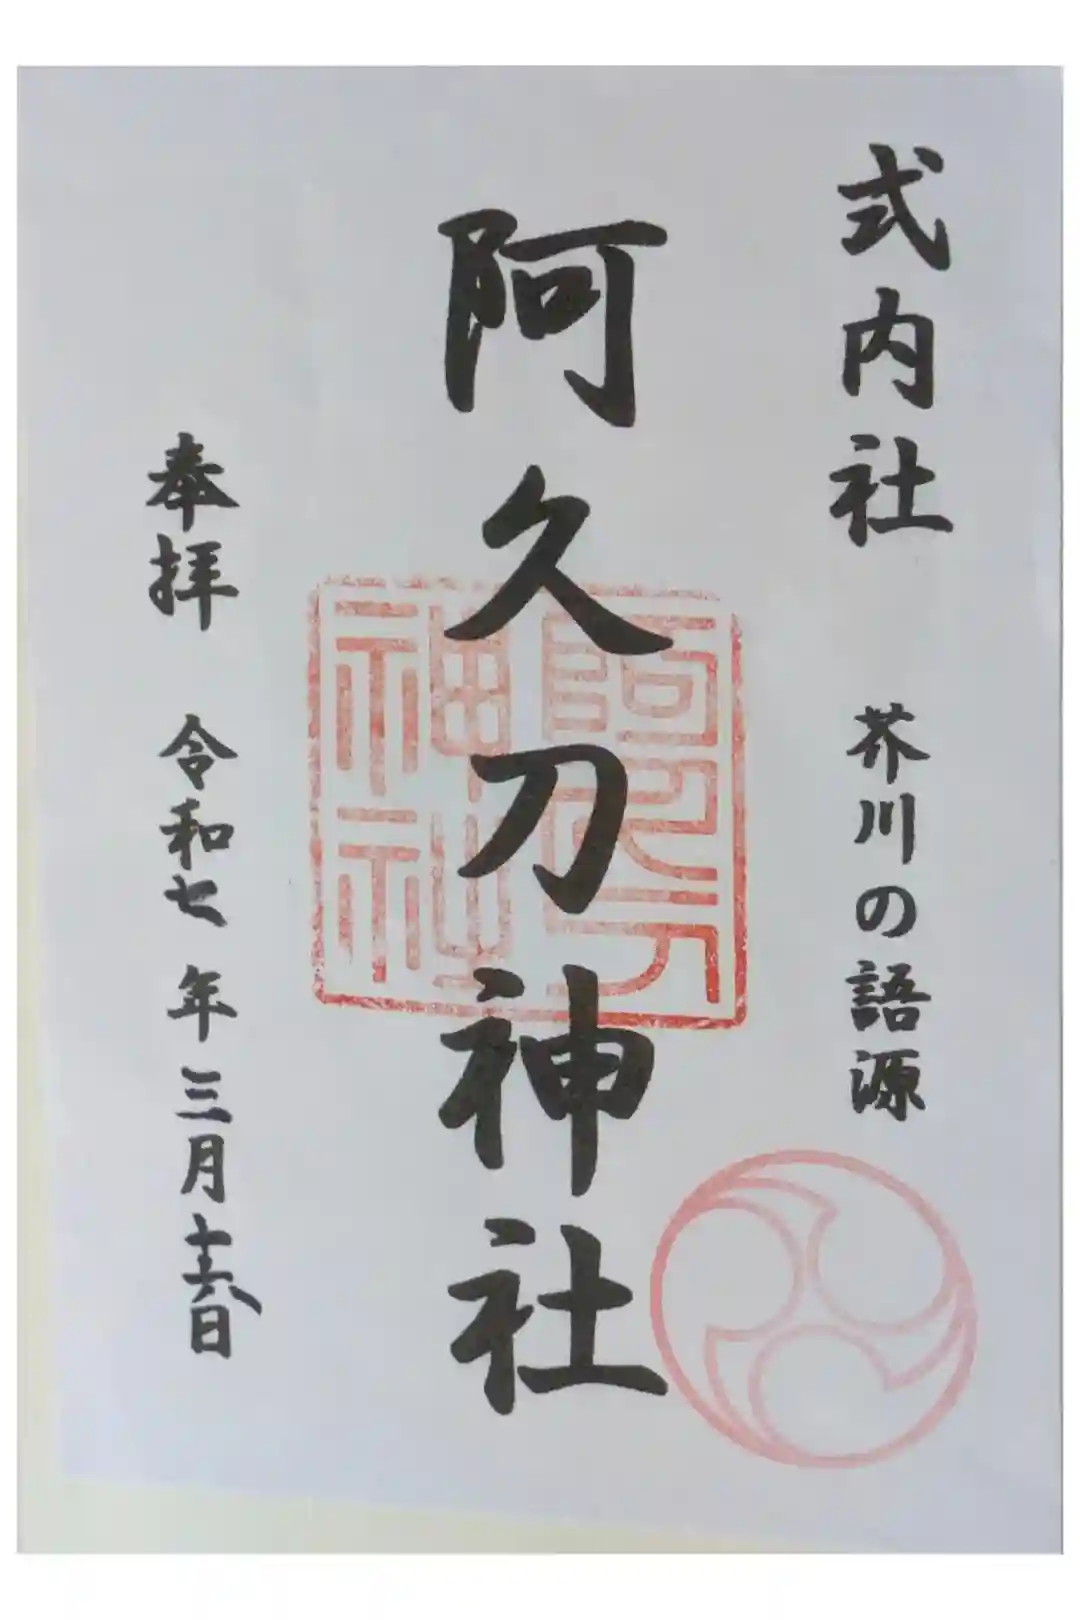 式内社 芥川の語源
阿久刀神社
奉拝 令和七年三月十六日
阿久刀
神社